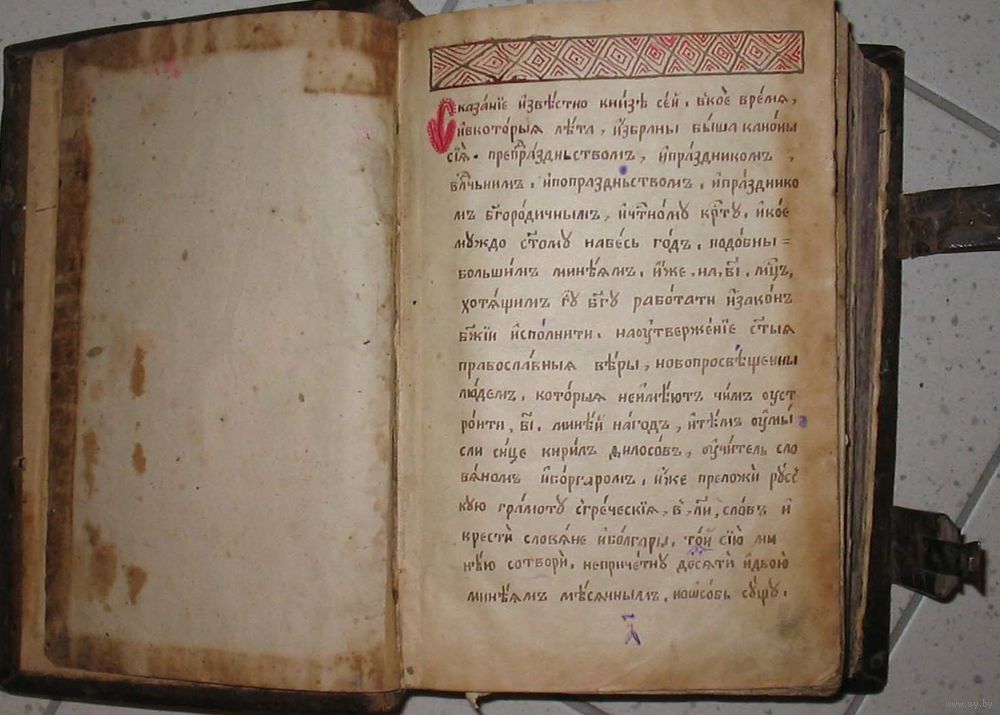 Сказа́нїе и҆звѣ́стно кни́зѣ се́й. в̾ко́е вре́мѧ,
и҆вкото́рыѧ лѣ́та, и҆з̾браны бы́ша кано́ны
сїѧ̀. препра́здньствомъ, и҆пра́здникомъ,
влⷣчьнимъ. и҆попра́здньствомъ. и҆пра́зднико
мъ бг҃оро́дичнымъ, и҆чⷭ҇тно́му крⷭ҇ту. и҆кое́
му́ждо ст҃о́му наве́сь го́дъ. подо́бны=
бо́льши́мъ мине́ѧмъ. и҆́же. на, в҃і. мцⷭ҇ъ,
хотѧ́щимъ гⷭ҇у бг҃у рабо́тати и҆зако́нъ
бж҃їи и҆спо́лнити. наоу҆твержде́нїе ст҃ы́ѧ
правосла́вныѧ вѣ́ры, новопросвѣще́нны
лю́демъ. кото́рыѧ неи҆мѣ́ютъ чи́мъ оуст
ро́ити, в҃і. мине́й на́годъ, и҆тѣ́мъ оу҆мы́
сли си́це кири́лъ филосо́въ, оу҆чи́тель сло
вѧ́номъ и҆бо́лгаромъ. и҆́же преложѝ ру́сс
кую гра́моту сгре́ческїѧ, в̾, л҃и, сло́въ и҆
крестѝ словѧ́не и҆болга́ры. то́й сїю̀ ми
нѣ́ю сотворѝ. непричетну̀ де́сѧти и҆двою̀
мине́ѧмъ мѣ́сѧчнымъ. но҆ѡсо́бь су́щу.